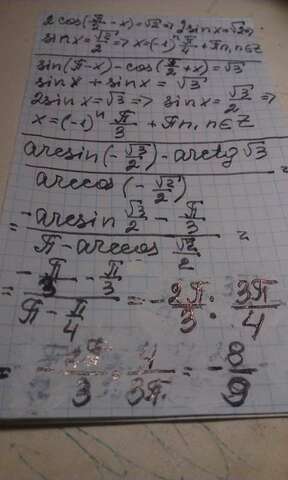 2cos(π/2 - x) = √3 => 2sin x = √2 =>
sin x = √2/2 => x = (-1)ⁿ π/4 + πn, n∈Z
sin(π-x) - cos(π/2 + x) = √3
sin x + sin x = √3
2sin x = √3 => sin x = √3/2 =>
x = (-1)ⁿ π/3 + πn, n∈Z
(arcsin(-√3/2) - arctg √3) / (arccos(-√2/2)) =
= (-arcsin √3/2 - π/3) / (π - arccos √2/2) =
= (-π/3 - π/3) / (π - π/4) = -2π/3 : 3π/4
= - /3 · 4/3π = -8/9